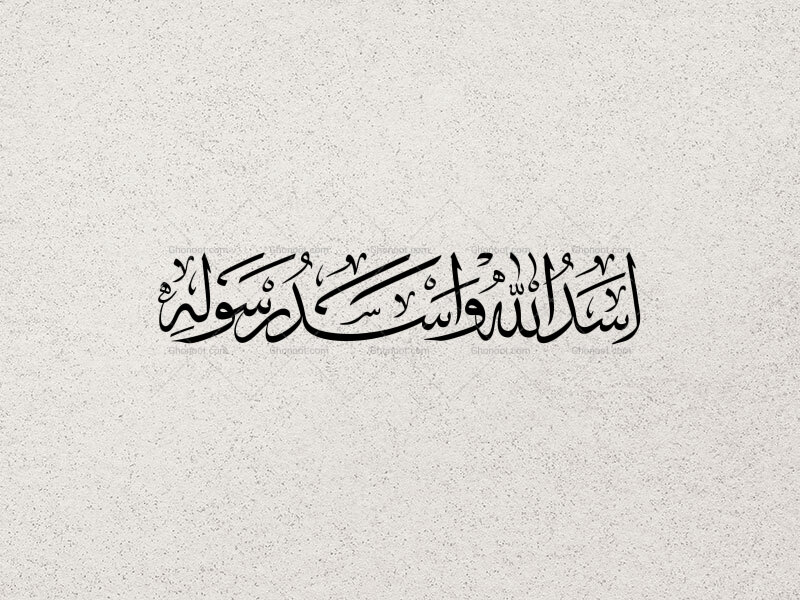 اسدالله واسد رسوله
Ghonoot.com Ghonoot.com Ghonoot.com Ghonoot.com Ghonoot.com
Ghonoot.com Ghonoot.com Ghonoot.com Ghonoot.com Ghonoot.com